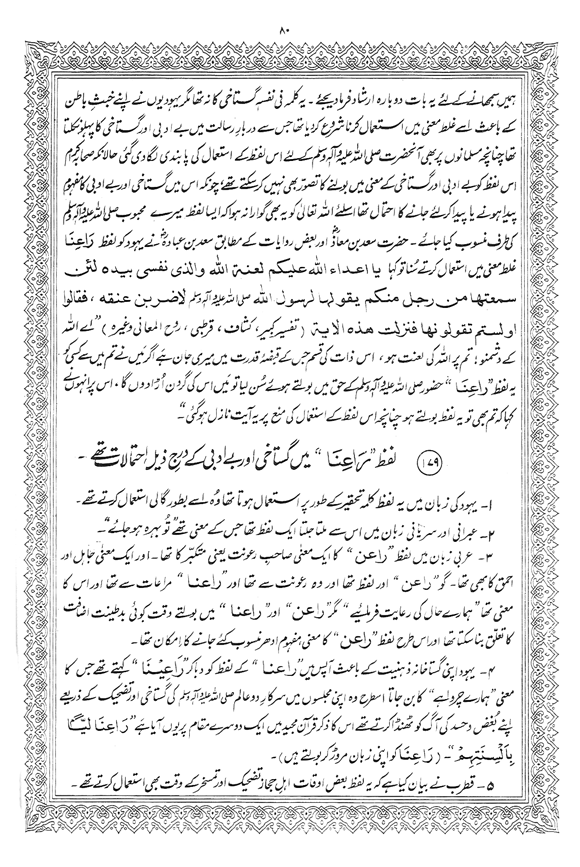 ۸۰
ہمیں سمجھانے کے لئے یہ بات دوبارہ ارشاد فرما دیجئے۔ یہ کلمہ فی نفسہٖ گستاخی کا نہ تھا مگر یہودیوں نے اپنے خبثِ باطن
کے باعث اسے غلط معنی میں استعمال کرنا شروع کر دیا تھا جس سے دربارِ رسالت میں بے ادبی اور گستاخی کا پہلو نکلتا
تھا چنانچہ مسلمانوں پر بھی آنحضرت صلی اللہ علیہ وآلہ وسلم کے لئے اس لفظ کے استعمال کی پابندی لگا دی گئی حالانکہ صحابہ کرام
اس لفظ کو بے ادبی اور گستاخی کے معنی میں بولنے کا تصور بھی نہیں کر سکتے تھے چونکہ اس میں گستاخی اور بے ادبی کا مفہوم
پیدا ہونے یا پیدا کر لئے جانے کا احتمال تھا اسلئے اللہ تعالیٰ کو یہ بھی گوارا نہ ہوا کہ ایسا لفظ میرے محبوب صلی اللہ علیہ وآلہ وسلم
کی طرف منسوب کیا جائے۔ حضرت سعد بن معاذؓ اور بعض روایات کے مطابق سعد بن عبادہؓ نے یہود کو لفظ رَاعِنَا
غلط معنی میں استعمال کرتے سُنا تو کہا یا اعداء اللہ علیکم لعنۃ اللہ والذی نفسی بیدہ لئن
سمعتھا من رجل منکم یقولہا لرسول اللہ صلی اللہ علیہ وآلہ وسلم لاضربن عنقہ ، فقالوا
اولستم تقولونھا فنزلت ھذہ الایۃ (تفسیر کبیر، کشاف، قرطبی، روح المعانی وغیرہ) ”اے اللہ
کے دشمنو! تم پر اللہ کی لعنت ہو، اس ذات کی قسم جس کے قبضۂ قدرت میں میری جان ہے اگر میں نے تم میں سے کسی کو
یہ لفظ ”رَاعِنَا“ حضور صلی اللہ علیہ وآلہ وسلم کے حق میں بولتے ہوئے سُن لیا تو میں اس کی گردن اڑا دوں گا، اس پر انہوں نے
کہا کہ تم بھی تو یہ لفظ بولتے ہو چنانچہ اس لفظ کے استعمال کی منع پر یہ آیت نازل ہو گئی“۔
(۱۷۹) لفظ ”رَاعِنَا“ میں گستاخی اور بے ادبی کے درج ذیل احتمالات تھے۔
۱۔ یہود کی زبان میں یہ لفظ کلمہ تحقیر کے طور پر استعمال ہوتا تھا وُہ اسے بطور گالی استعمال کرتے تھے۔
۲۔ عبرانی اور سریانی زبان میں اس سے ملتا جلتا ایک لفظ تھا جس کے معنی تھے ”تُو بہرہ ہو جائے“۔
۳۔ عربی زبان میں لفظ ”راعن“ کا ایک معنی صاحبِ رعونت یعنی متکبر کا تھا۔ اور ایک معنی جاہل اور
احمق کا بھی تھا۔ گو ”راعن“ اور لفظ تھا اور وہ رعونت سے تھا اور ”راعنا“ مراعات سے تھا اور اس کا
معنی تھا ”ہمارے حال کی رعایت فرمائیے“ مگر ”راعن“ اور ”راعنا“ میں بولتے وقت کوئی بدطینت اضافت
کا تعلق بنا سکتا تھا اور اس طرح لفظ ”راعن“ کا معنی مفہوم ادھر منسوب کئے جانے کا امکان تھا۔
۴۔ یہود اپنی گستاخانہ ذہنیت کے باعث آپس میں ”راعنا“ کے لفظ کو دبا کر ”رَاعِیْنَا“ کہتے تھے جس کا
معنی ”ہمارے چرواہے“ کا بن جاتا اسطرح وہ اپنی مجلسوں میں سرکارِ دو عالم صلی اللہ علیہ وآلہ وسلم کی گستاخی اور تضحیک کے ذریعے
اپنے بُغض و حسد کی آگ کو ٹھنڈا کرتے تھے اس کا ذکر قرآن مجید میں ایک دوسرے مقام پر یوں آیا ہے ”رَاعِنَا لَيًّاۢ
بِاَلْسِنَتِهِمْ“۔ (رَاعِنَا کو اپنی زبان مروڑ کر بولتے ہیں)۔
۵۔ قطرب نے بیان کیا ہے کہ یہ لفظ بعض اوقات اہلِ حجاز تضحیک اور تمسخر کے وقت بھی استعمال کرتے تھے۔